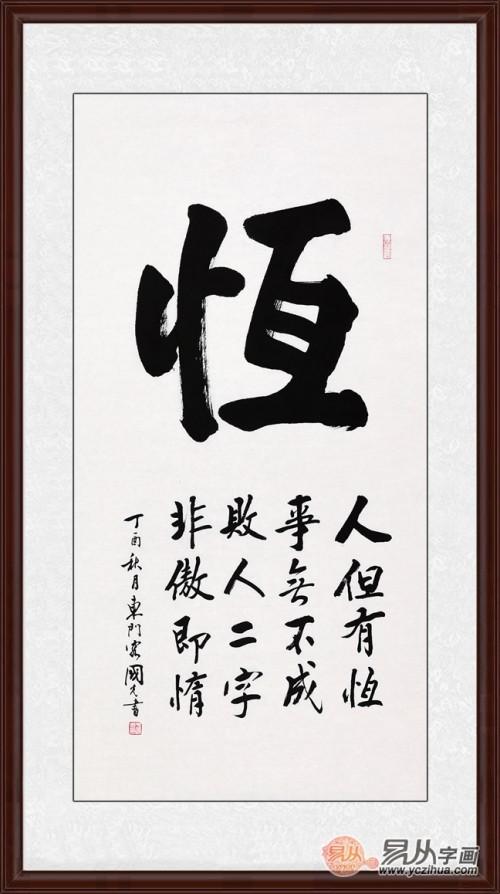 恆
人但有恆
事無不成
敗人二字
非傲即惰
丁酉秋月東門客國元書
易从
易从字画
www.yczihua.com